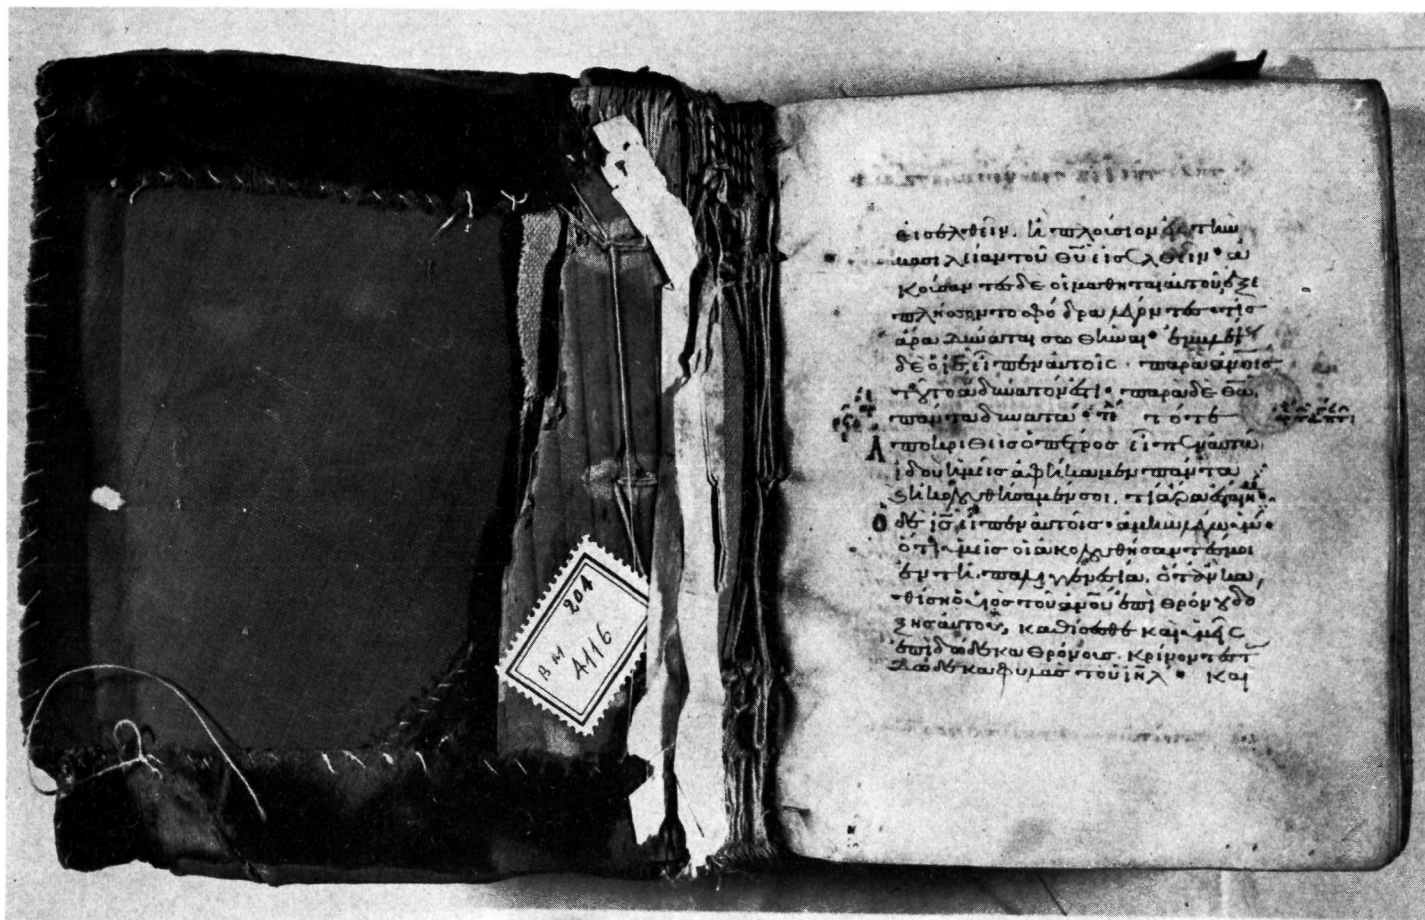 201
BM
A116
εισελθεῖν. ἢ πλούσιον εἰς τὴν
βασιλείαν τοῦ θ̅υ̅ εἰσελθεῖν· ἀ
κούσαντες δὲ οἱ μαθηταὶ αὐτοῦ, ἐξε
πλήσσοντο σφόδρα λέγοντες· τίς
ἄρα δύναται σωθῆναι·
δὲ ὁ ι̅ς̅ εἶπεν αὐτοῖς· παρὰ α̅ν̅οις
τοῦτο ἀδύνατόν ἐστι· παρὰ δὲ θ̅ω̅,
πάντα δυνατά· τότε
Ἀποκριθεὶς ὁ πέτρος εἶπεν αὐτῶ,
ἰδοὺ ἡμεῖς ἀφήκαμεν πάντα
καὶ ἠκολουθήσαμέν σοι. τί ἄρα ἔσται
Ὁ δὲ ι̅ς̅ εἶπεν αὐτοῖς· ἀμὴν λέγω ὑμῖν·
ὅτι ὑμεῖς οἱ ἀκολουθήσαντές μοι
ἐν τῆ παλιγγενεσία, ὅταν κα
θίση ὁ υἱὸς τοῦ α̅ν̅ου ἐπὶ θρόνου δό
ξης αὐτοῦ, καθίσεσθε καὶ ὑμεῖς
ἐπὶ δώδεκα θρόνους. κρίνοντες τὰς
δώδεκα φυλὰς τοῦ ι̅η̅λ̅· Καὶ